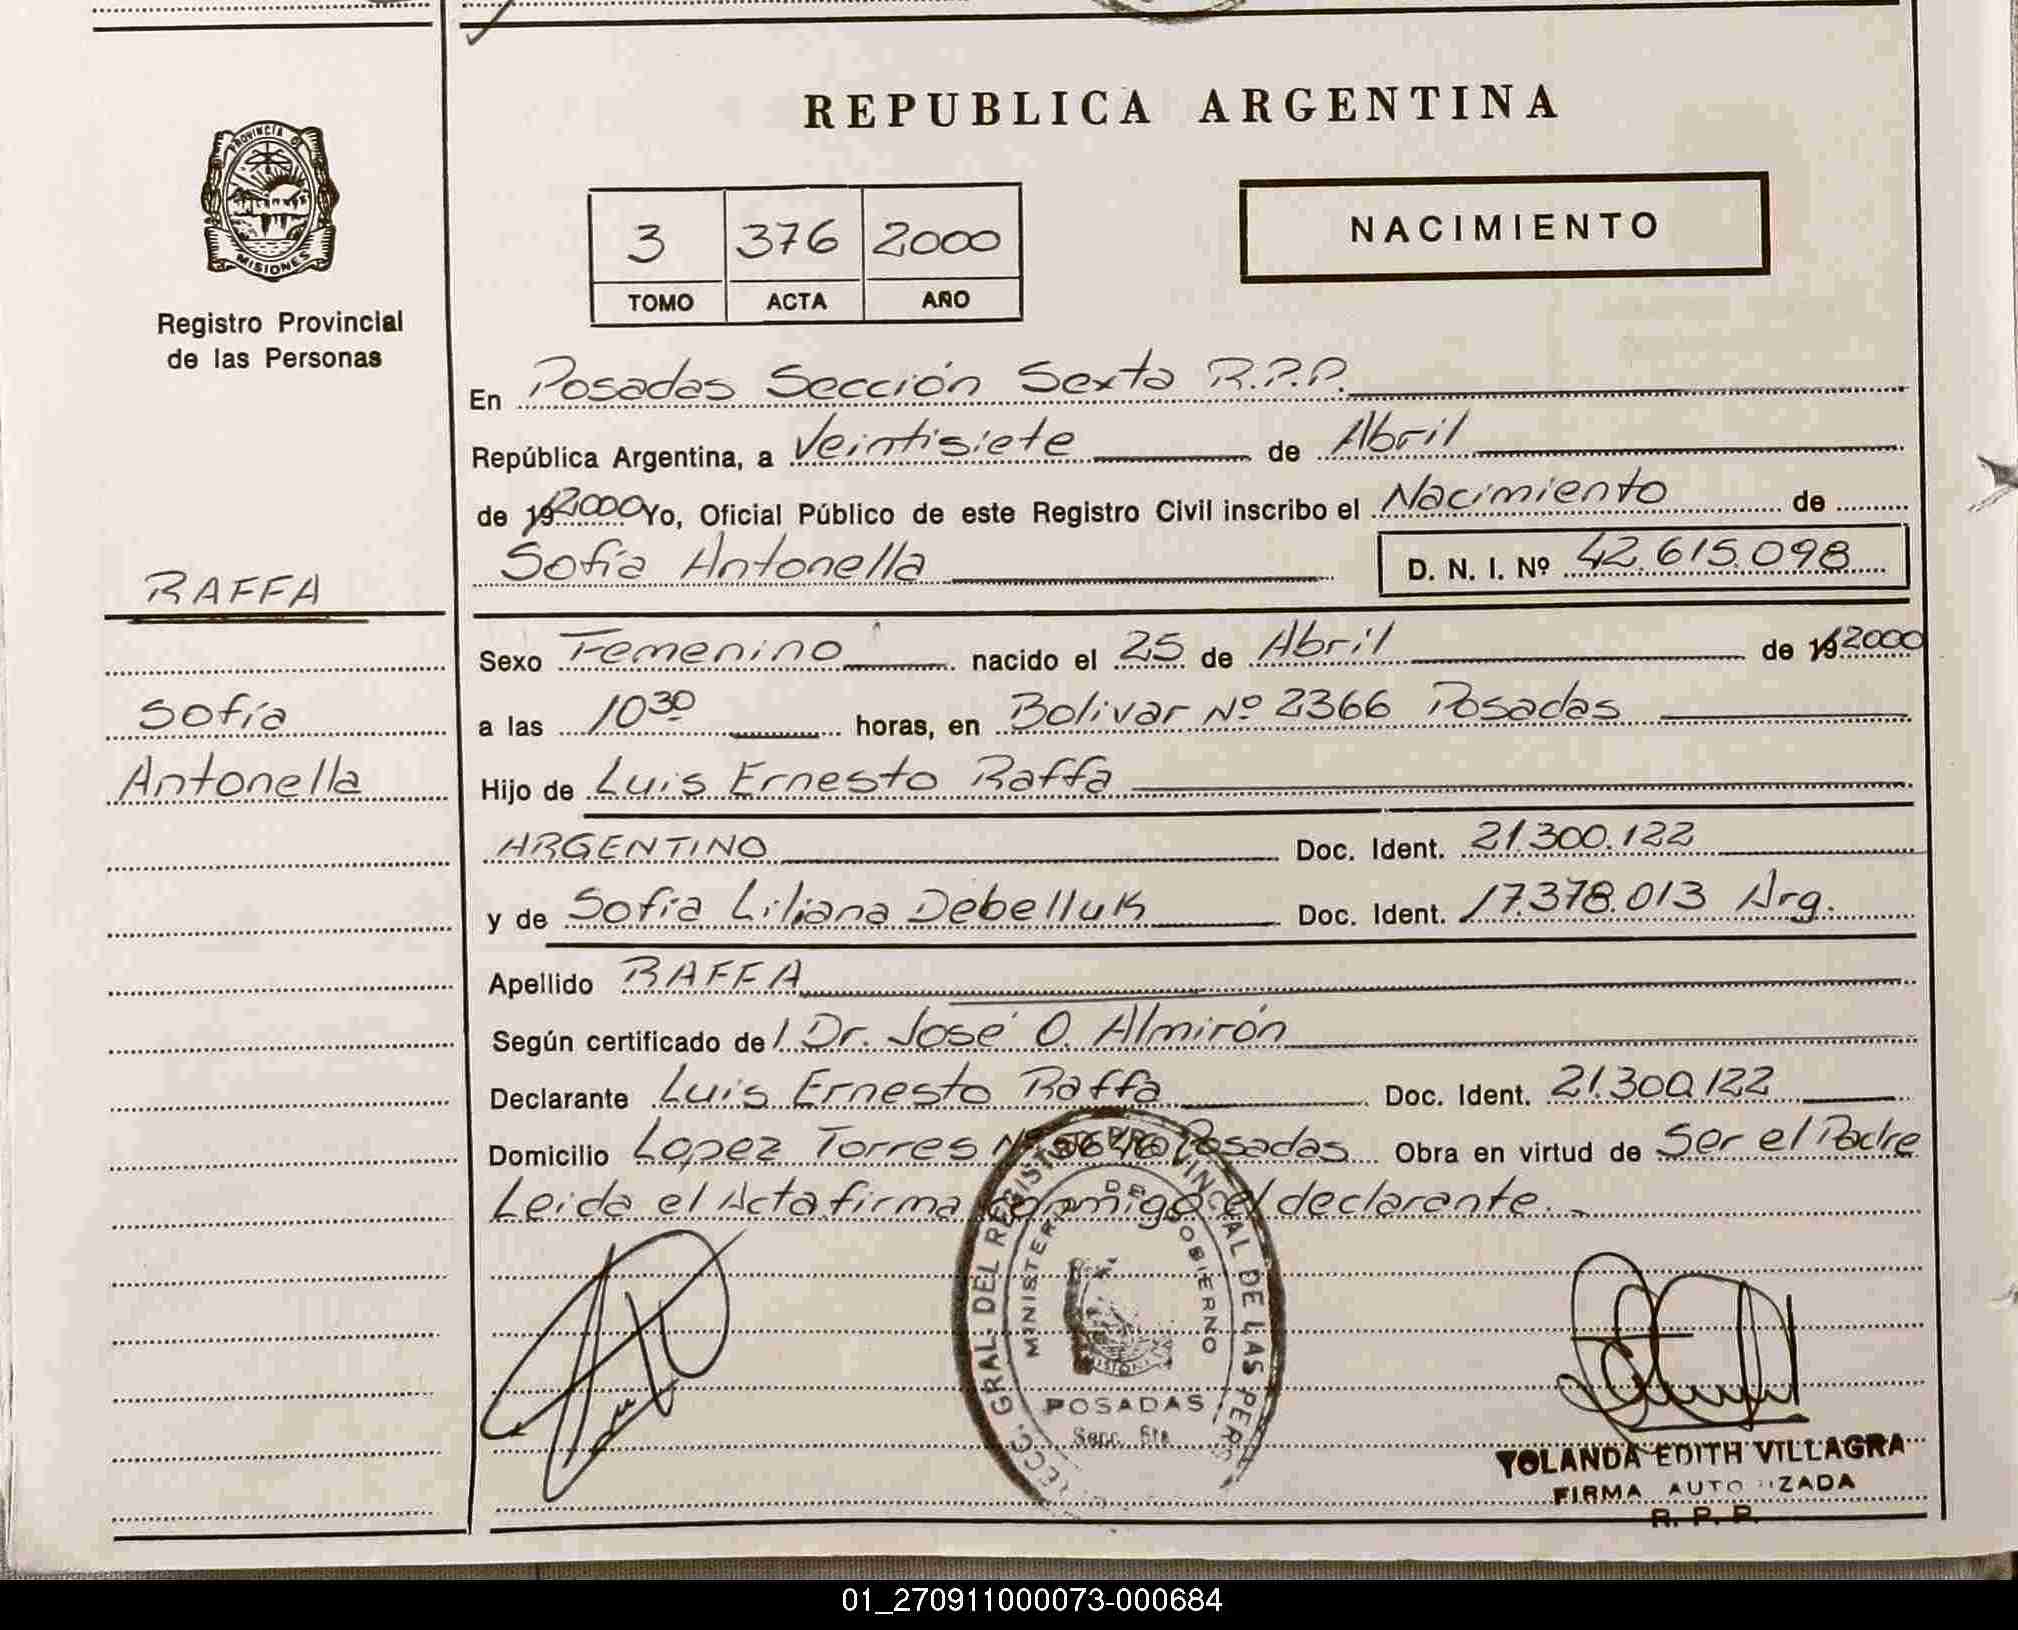 REPUBLICA ARGENTINA
PROVINCIA DE
MISIONES
Registro Provincial
de las Personas
3 376 2000
TOMO ACTA AÑO
NACIMIENTO
En Posadas Sección Sexta R.P.P.
República Argentina, a Veintisiete de Abril
de 19 2000 Yo, Oficial Público de este Registro Civil inscribo el Nacimiento de
Sofía Antonella D. N. I. Nº 42.615.098
RAFFA
Sofía
Antonella
Sexo Femenino nacido el 25 de Abril de 19 2000
a las 10 30 horas, en Bolivar Nº 2366 Posadas
Hijo de Luis Ernesto Raffa
ARGENTINO Doc. Ident. 21.300.122
y de Sofía Liliana Debelluk Doc. Ident. 17.378.013 Arg.
Apellido RAFFA
Según certificado de l Dr. José O. Almirón
Declarante Luis Ernesto Raffa Doc. Ident. 21.300.122
Domicilio Lopez Torres Nº Posadas Obra en virtud de Ser el Padre
Leida el Acta firma conmigo el declarante.
GRAL DEL REGISTRO PROVINCIAL DE LAS PERS
MINISTERIO DE GOBIERNO
POSADAS
Secc. 6ta
YOLANDA EDITH VILLAGRA
FIRMA AUTORIZADA
R. P. P.
01_270911000073-000684